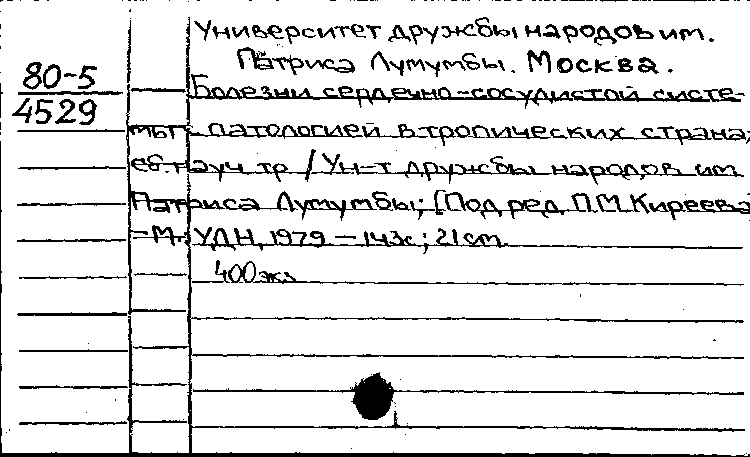 Университет дружбы народов им.
Патриса Лумумбы. Москва.
80-5
4529
Болезни сердечно-сосудистой систе-
мы с патологией в тропических страна;
сб. науч тр / Ун-т дружбы народов им
Патриса Лумумбы; [Под ред. П.М. Киреева
-М.: УДН, 1979 - 143с; 21 см.
400 экз